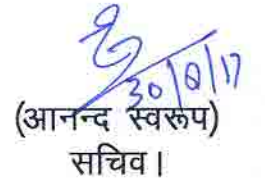 30/8/17
(आनन्द स्वरूप)
सचिव।